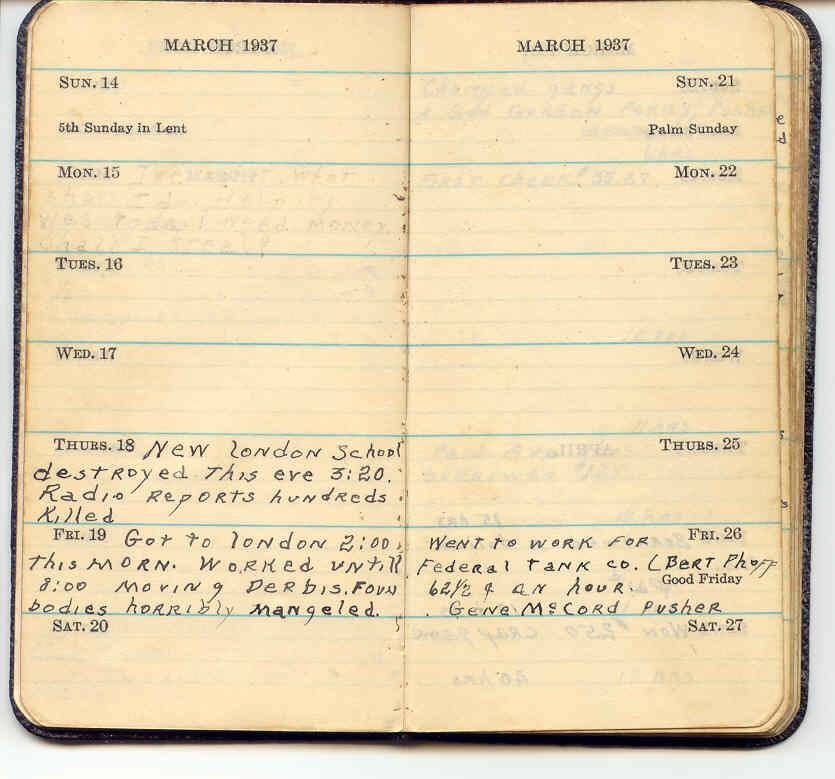 MARCH 1937
SUN. 14
5th Sunday in Lent
MON. 15
TUES. 16
WED. 17
THURS. 18 New London School
destroyed This eve 3:20.
Radio Reports hundreds
Killed
FRI. 19 Got to london 2:00
This morn. Worked until
8:00 moving Derbis. Foun
bodies horribly mangeled.
SAT. 20
MARCH 1937
SUN. 21
Palm Sunday
MON. 22
TUES. 23
WED. 24
THURS. 25
FRI. 26
Went to work for
Federal Tank Co. (Bert Phoff
Good Friday
62½ ¢ an hour.
Gene McCord Pusher
SAT. 27